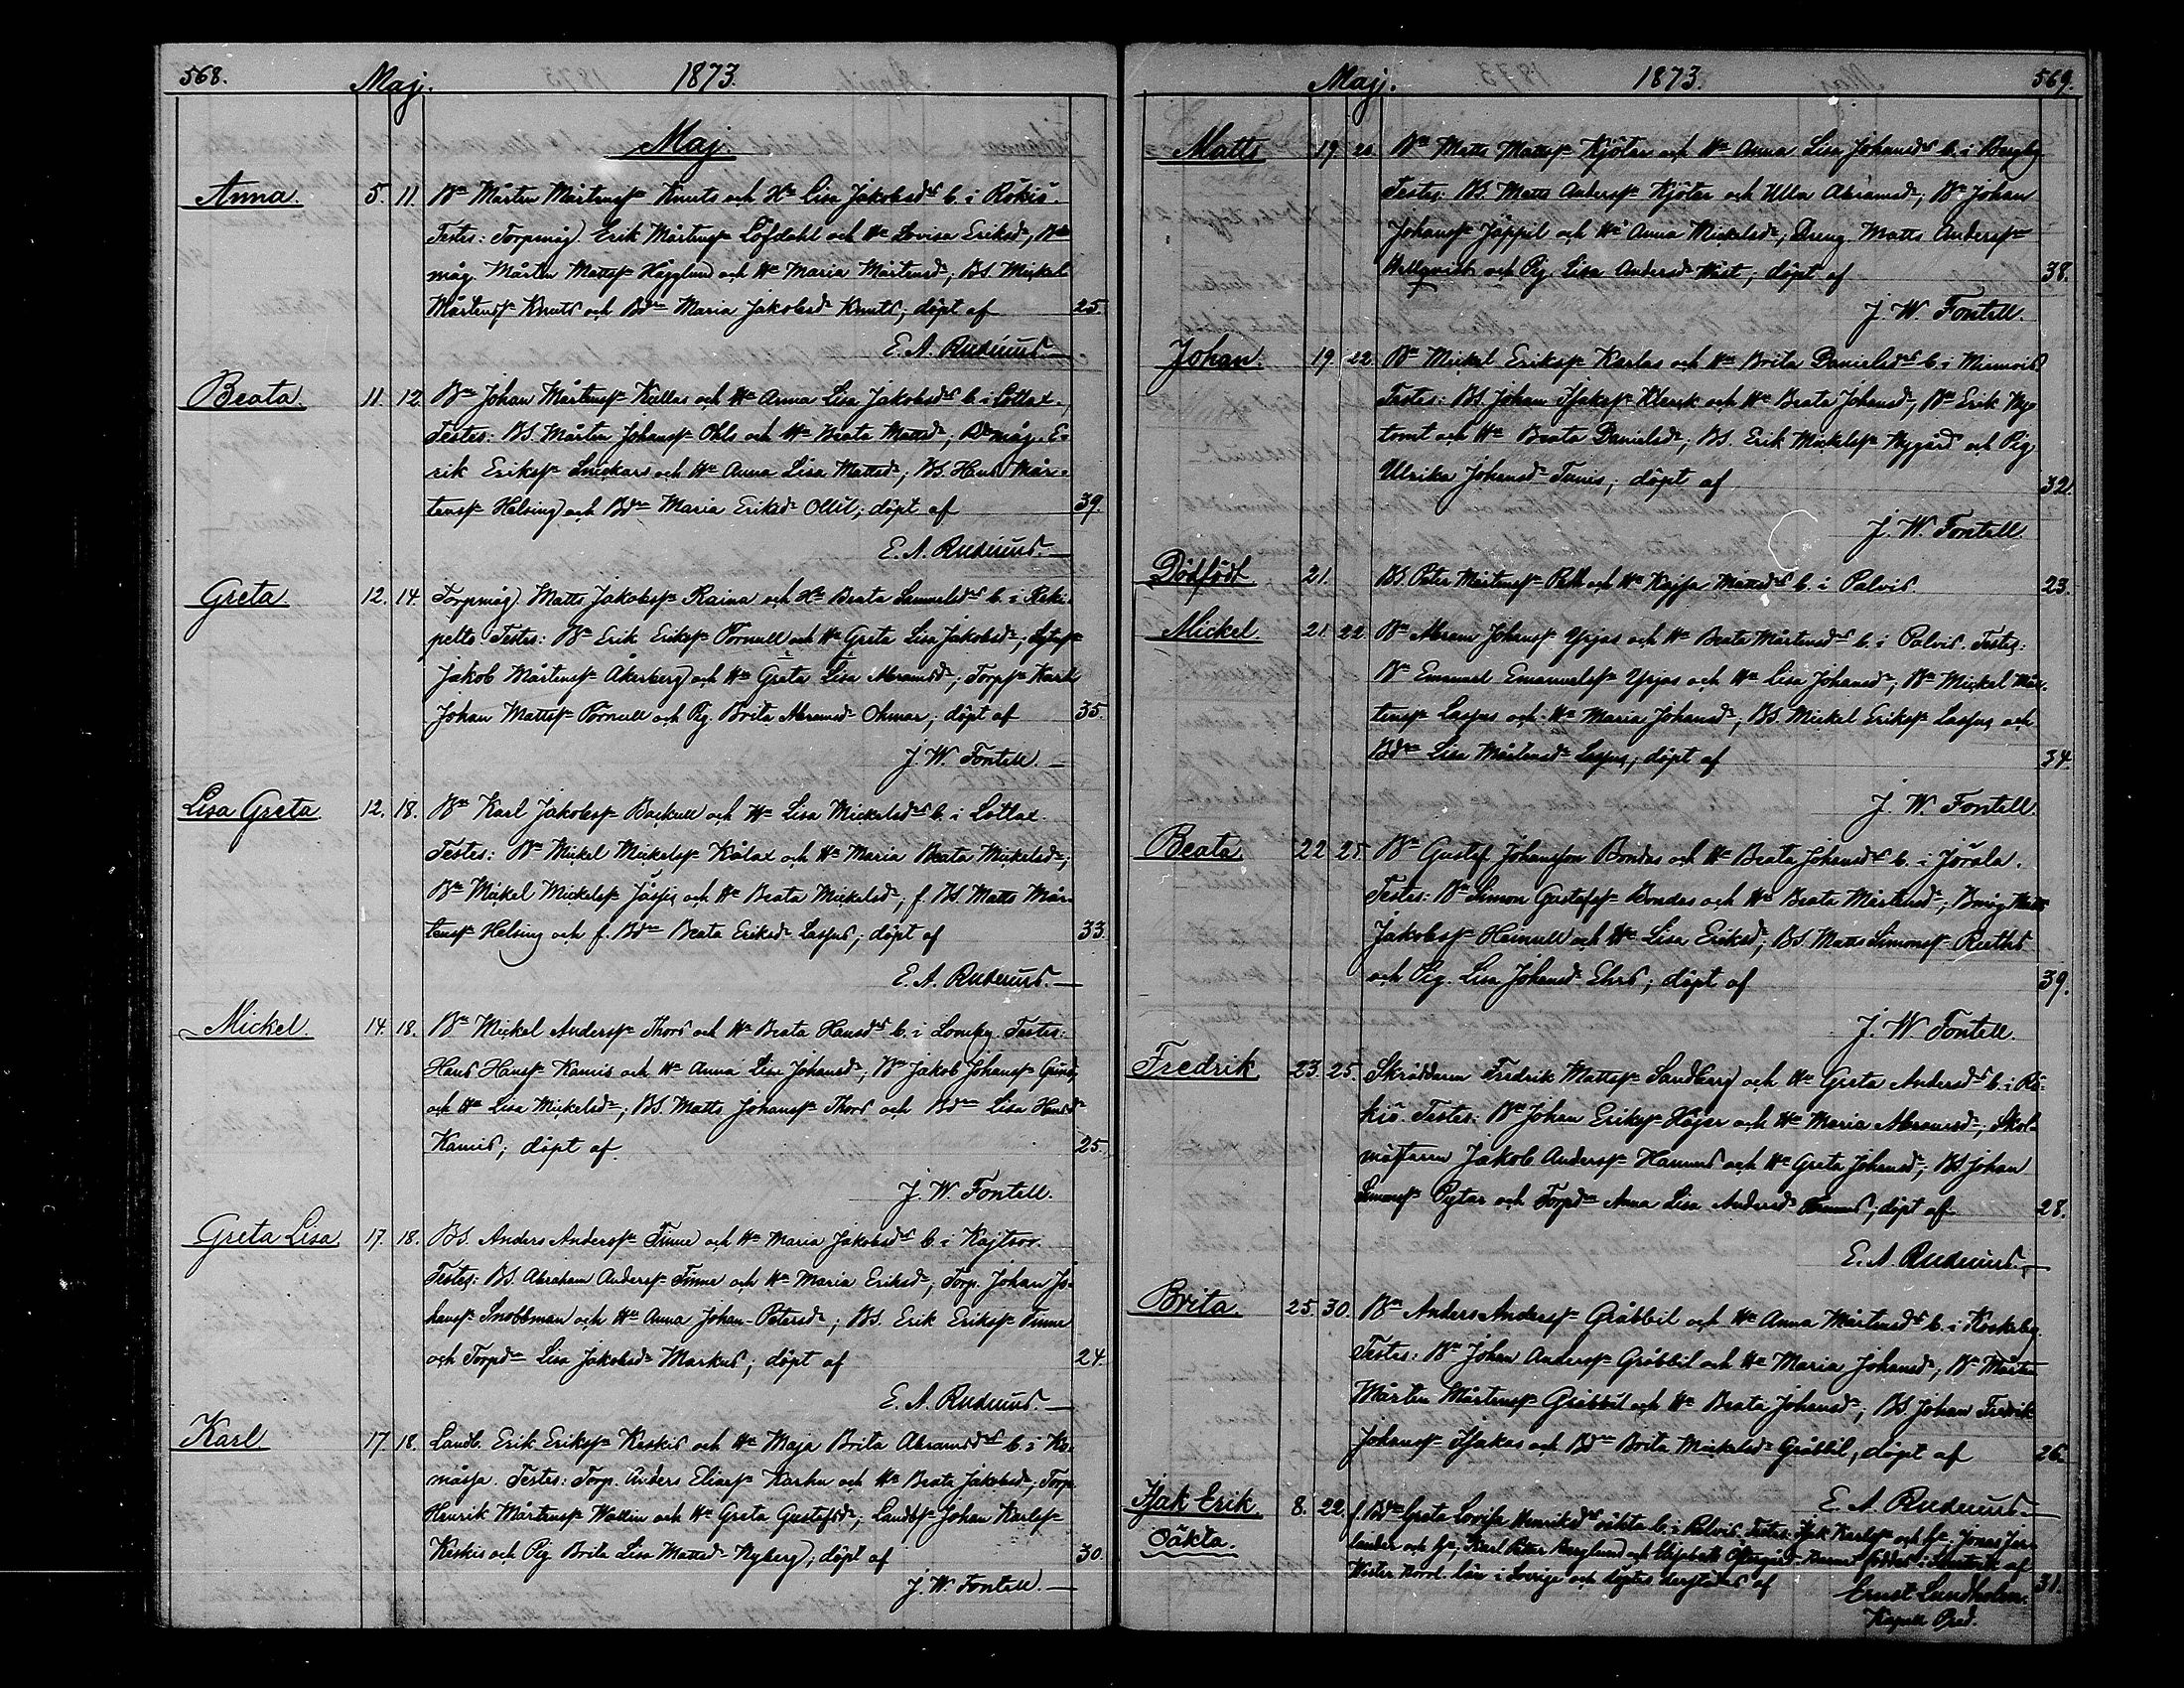 568. Maj. 1873.
Maj.
Anna. 5. 11. Bn Mårten Mårtensn Knuts och Hu Lisa Jakobsdr b. i Rökiö.
Testes: Torpmåg Erik Mårtensn Löfdahl och Hu Lovisa Eriksdr,
måg. Mårten Mattsn Hägglund och Hu Maria Mårtensdr; BS. Mickel
Mårtensn Knuts och Bdr Maria Jakobsdr Knuts; döpt af 25.
E. A. Rudenius.
Beata. 11. 12. Bn Johan Mårtensn Kullas och Hu Anna Lisa Jakobsdr b. i Lotlax.
Testes: BS. Mårten Johansn Ohls och Hu Beata Mattsdr, Bdmåg. E-
rik Eriksn Snickars och Hu Anna Lisa Mattsdr; BS. Hans Mår-
tensn Helsing och Bdr Maria Eriksdr Ollil; döpt af 39.
E. A. Rudenius.
Greta 12. 14. Torpmåg Matts Jakobsn Raina och Hu Beata Samuelsdr b. i Keki-
pelto Testes: Bn Erik Eriksn Pörnull och Hu Greta Lisa Jakobsdr;
Jakob Mårtensn Åkerberg och Hu Greta Lisa Abramsdr; Torpsn Karl
Johan Mattsn Pörnull och Pig. Brita Abramsdr Ohmar; döpt af 35.
J. W. Fontell.
Lisa Greta 12. 18. Bn Karl Jakobsn Backull och Hu Lisa Mickelsdr b. i Lotlax.
Testes: Bn Mickel Mickelsn Kålax och Hu Maria Beata Mickelsdr;
Bn Mickel Mickelsn Jåfsis och Hu Beata Mickelsdr; f. BS. Matts Mår-
tensn Helsing och f. Bdr Beata Eriksdr Lassus; döpt af 33.
E. A. Rudenius.
Mickel. 14. 18. Bn Mickel Andersn Thors och Hu Beata Hansdr b. i Lomby. Testes:
Hans Hansn Kamis och Hu Anna Lisa Johansdr, Bn Jakob Johansn
och Hu Lisa Mickelsdr; BS. Matts Johansn Thors och Bdr Lisa Hansdr
Kamis; döpt af 25.
J. W. Fontell.
Greta Lisa 17. 18. BS. Anders Andersn Finne och Hu Maria Jakobsdr b. i Kajtsor.
Testes: BS. Abraham Andersn Finne och Hu Maria Eriksdr; Torp. Johan Jo-
hansn Snobbman och Hu Anna Johan-Petersdr; BS. Erik Eriksn Finne
och Torpdr Lisa Jakobsdr Markus; döpt af 24.
E. A. Rudenius.
Karl 17. 18. Landb. Erik Eriksn Keskis och Hu Maja Brita Abramsdr b. i Ko-
måssa. Testes: Torp. Anders Eliasn Karhu och Hu Beata Jakobsdr; Torp.
Henrik Mårtensn Wallin och Hu Greta Gustafsdr; Landbsn Johan Karlsn
Keskis och Pig Brita Lisa Mattsdr Nyberg; döpt af 30.
J. W. Fontell.
Maj. 1873. 569.
Matts 19 20 Bn Matts Mattsn Kjötar och Hu Anna Lisa Johansdr b. i Bergby
Testes: BS. Matts Andersn Kjötar och Ulla Abramsdr; Bn Johan
Johansn Jäppil och Hu Anna Mickelsdr; Dreng Matts Andersn
Hellqvist och Pig Lisa Andersdr Wist; döpt af 38.
J. W. Fontell.
Johan. 19 22. Bn Mickel Eriksn Karlas och Hu Brita Danielsdr b. i Miemois
Testes: BS. Johan Isaksn Klerck och Hu Beata Johansdr, Bn Erik Ny-
tomt och Hu Beata Danielsdr; BS. Erik Mickelsn Nygård och Pig
Ulrika Johansdr Tunis; döpt af 32.
J. W. Fontell
Dödfödt 21. BS. Peter Mårtensn Pott och Hu Kajsa Mattsdr b. i Palvis. 23.
Mickel 21. 22 Bn Abram Johansn Yrjas och Hu Beata Mårtensdr b. i Palvis. Testes:
Bn Emanuel Emanuelsn Yrjas och Hu Lisa Johansdr; Bn Mickel Mår-
tensn Lassus och Hu Maria Johansdr; BS. Mickel Eriksn Lassus och
Bdr Lisa Mårtensdr Lassus; döpt af 34.
J. W. Fontell.
Beata. 22 25. Bn Gustaf Johansson Bondas och Hu Beata Johansdr b. i Jörala.
Testes: Bn Simon Gustafsn Bondas och Hu Beata Mårtensdr; Bmåg Matts
Jakobsn Heinull och Hu Lisa Eriksdr; BS. Matts Simonsn Ruths
och Pig. Lisa Johansdr Ehrs; döpt af 39.
J. W. Fontell.
Fredrik. 23. 25. Skräddaren Fredrik Mattsn Sandberg och Hu Greta Andersdr b. i Rö-
kiö. Testes: Bn Johan Eriksn Höjer och Hu Maria Abramsdr; Skol-
mästaren Jakob Andersn Hannus och Hu Greta Johansdr; BS Johan
Simonsn Pytar och Torpdr Anna Lisa Andersdr Hannus; döpt af 28.
E. A. Rudenius.
Brita. 25. 30. Bn Anders Andersn Gråbbil och Hu Anna Mårtensdr b. i Koskeby.
Testes: Bn Johan Andersn Gråbbil och Hu Maria Johansdr; Bn Mårten
Mårten Mårtensn Gråbbil och Hu Beata Johansdr; BS. Johan Fredrik
Johansn Isakas och Bdr Brita Mickelsdr Gråbbil, döpt af 26.
E. A. Rudenius.
Isak Erik. 8. 22. f. Bdr Greta Lovisa Henriksdr oäkta b. i Palvis. Testes: Isak Karlsn och Hu, Jonas Jer-
Oäkta. lander och Hu, Karl Peter Berglund och Elisabeth föddes i af
Wester Norrl. län i Sverige och döptes derstädes af 31.
Ernst Lundholm.
Kapell Pred.